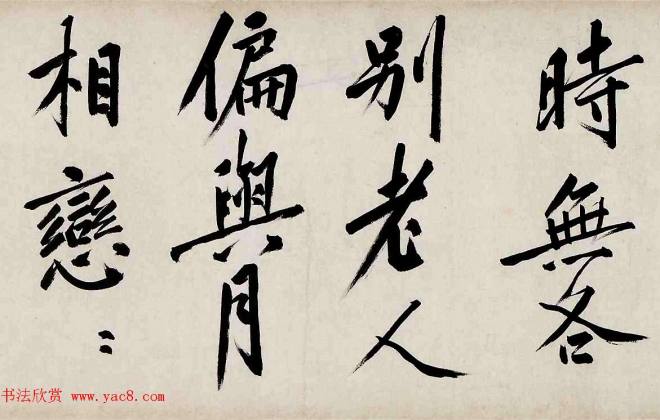 時無各
別老人
偏與月
相戀〻
书法欣赏 www.yac8.com